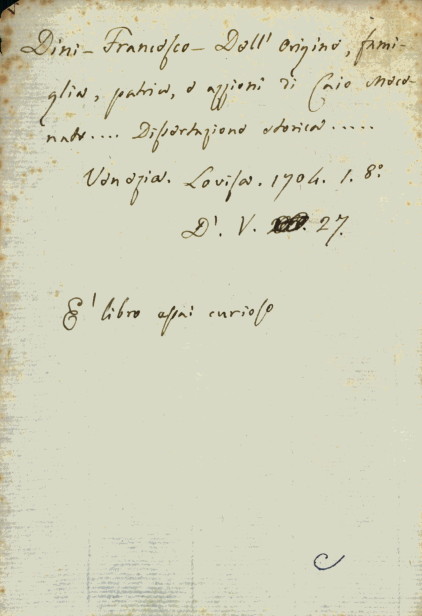 Dini - Francesco - Dell' origine, fami-
glia, patria, e azzioni di Caio Mece-
nate.... Dissertazione storica.....
Venezia. Lovisa. 1704. 1. 8º
D'. V. 27.
E' libro assai curioso
C